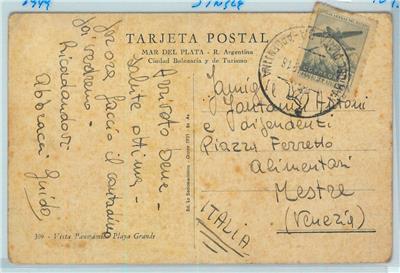 TARJETA POSTAL
MAR DEL PLATA - R. Argentina
Ciudad Balnearia y de Turismo
Arrivato bene -
Salute ottima -
Ancora faccio il contadino
poi vedremo -
Ricordandovi
Abbracci Guido
Famiglia
Antoni
e Dipendenti
Piazza Ferretto
Alimentari
Mestre
(Venezia)
ITALIA
309 - Vista Panorámica Playa Grande